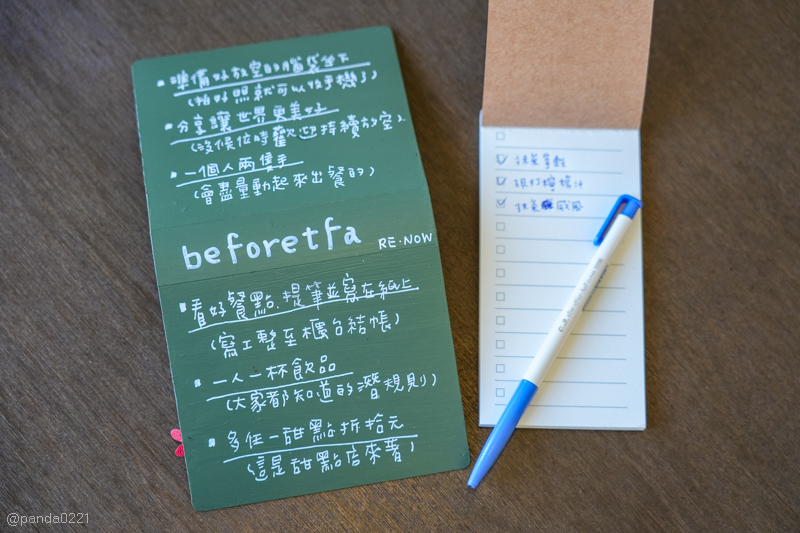 準備好放空的腦袋坐下
(拍好照就可以收手機了)
分享讓世界更美好
(沒候位時歡迎持續放空)
一個人兩隻手
(會盡量動起來出餐的)
beforetfa RE.NOW
看好餐點.提筆並寫在紙上
(寫工整至櫃台結帳)
一人一杯飲品
(大家都知道的潛規則)
多任一甜點折拾元
(這是甜點店來著)
抹茶
現打檸檬汁
抹茶 戚風
@panda0221